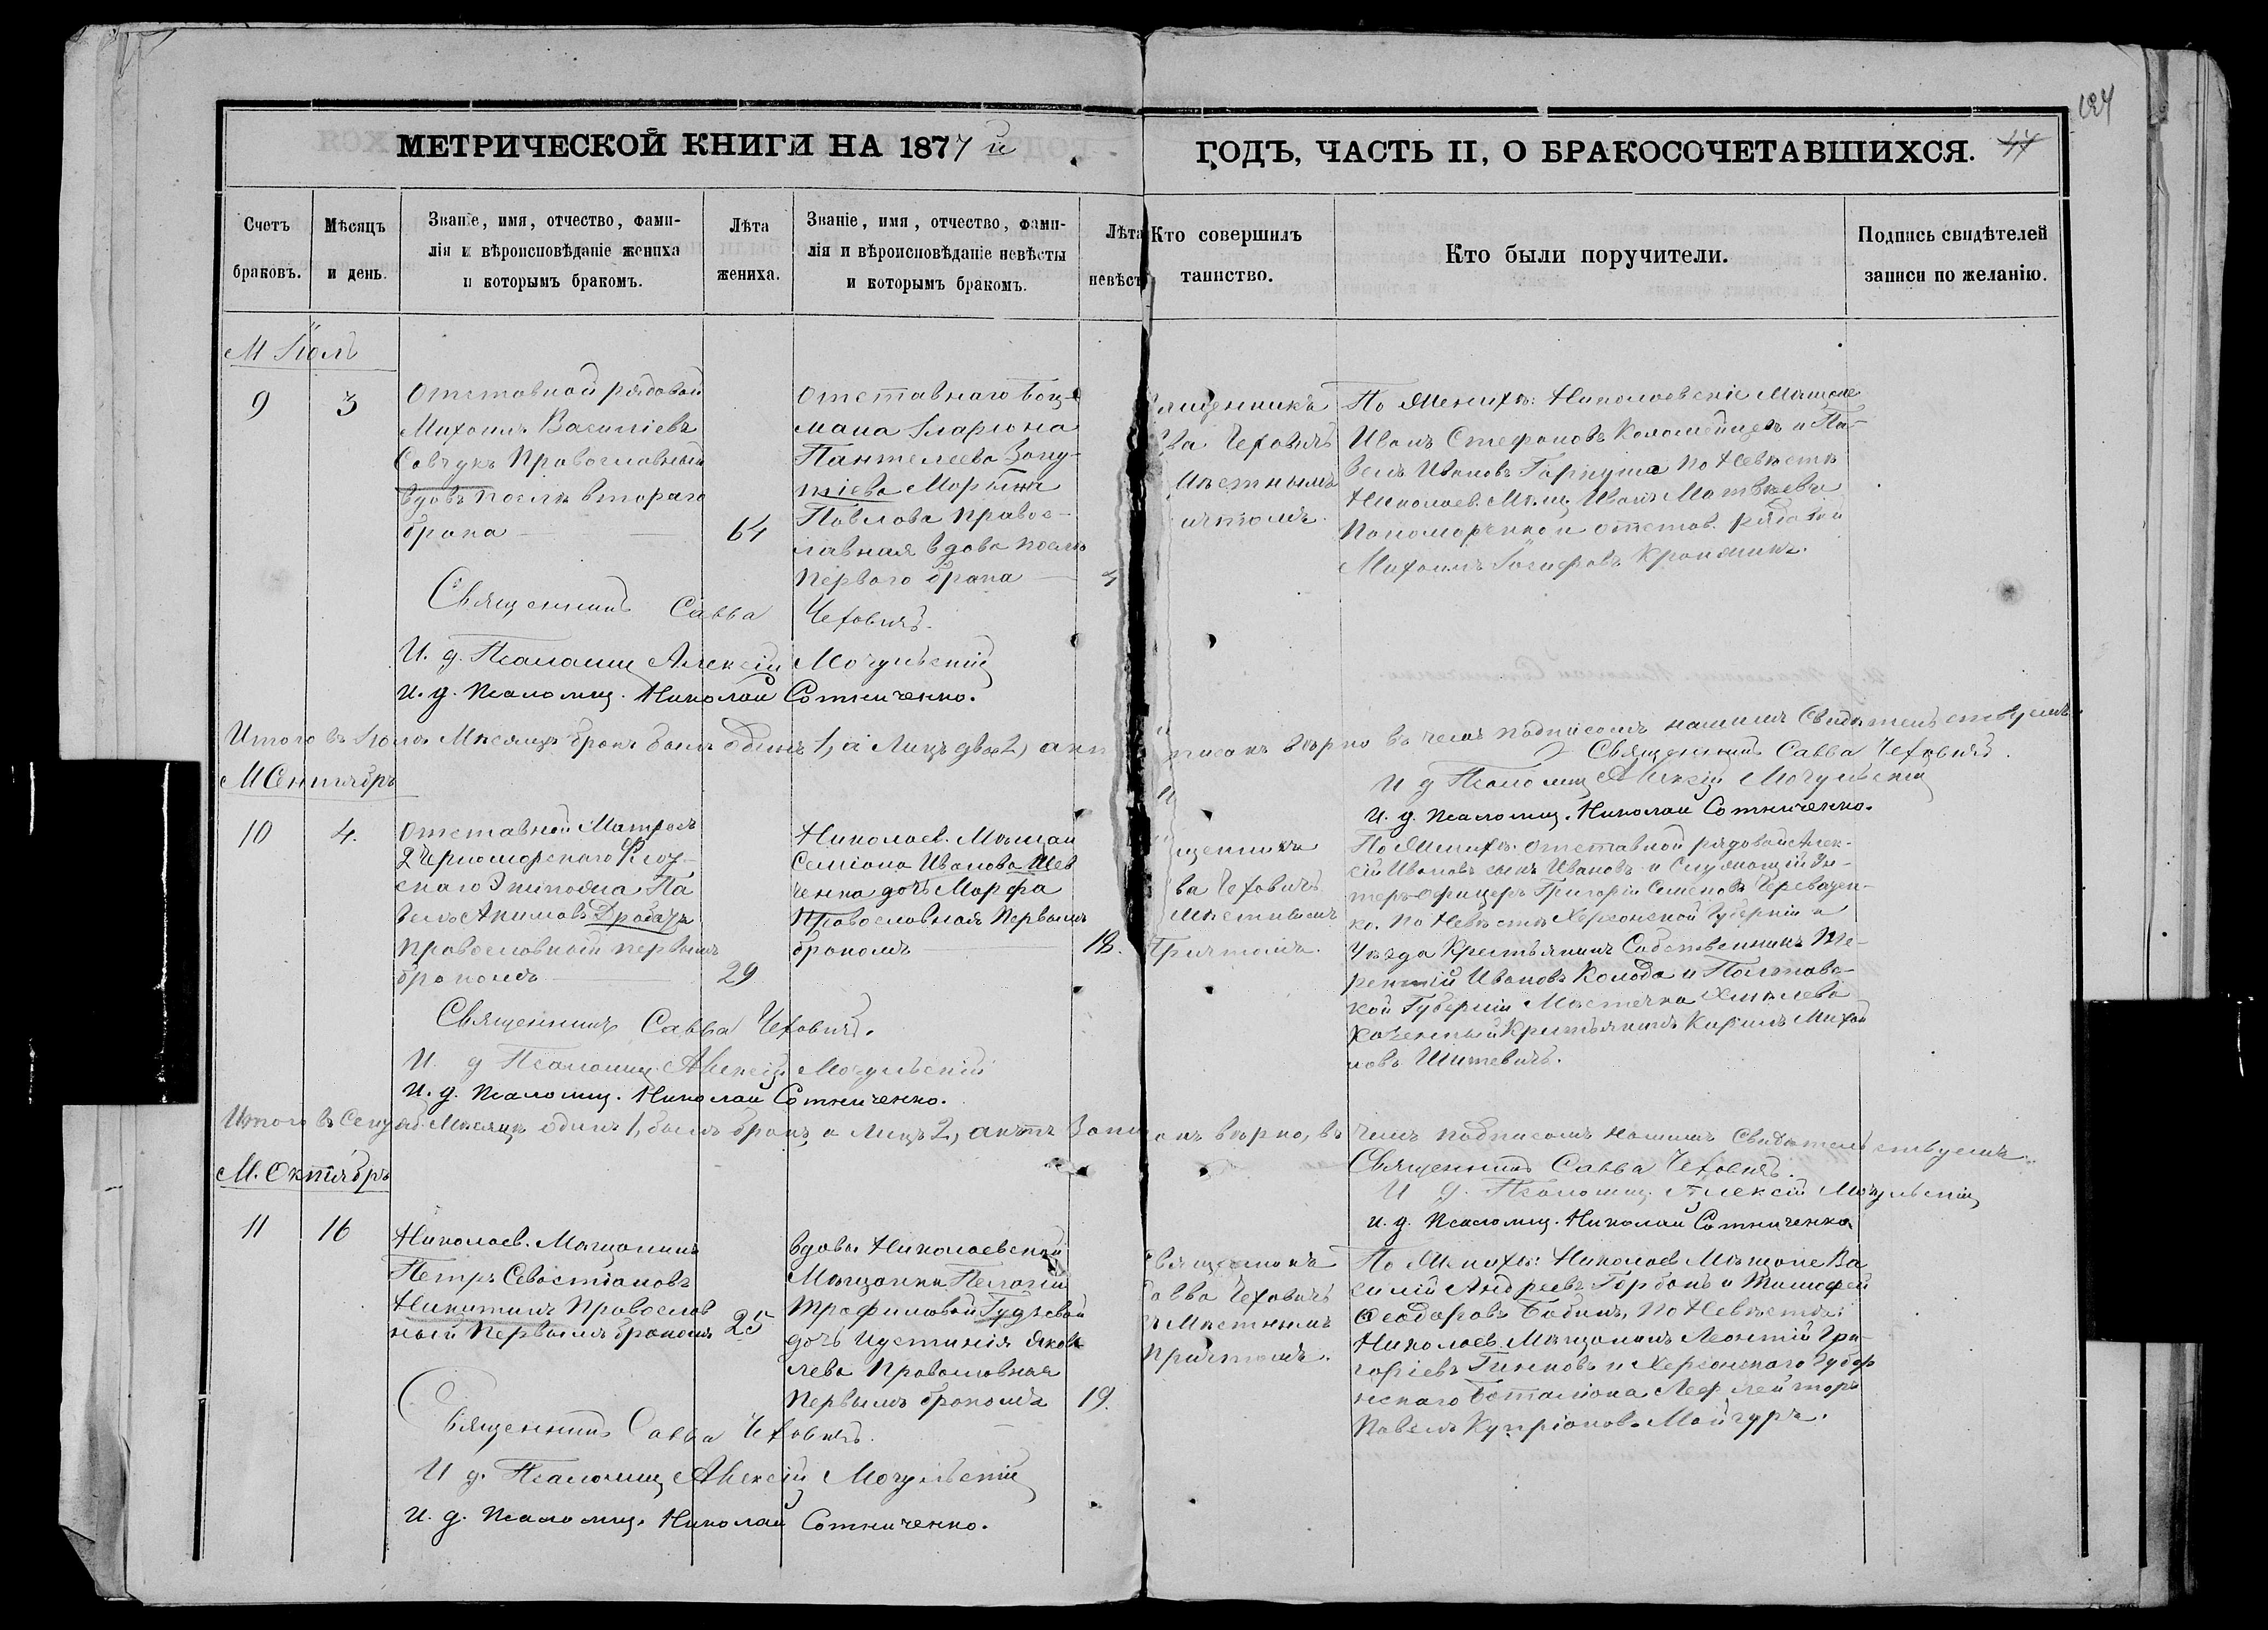 МЕТРИЧЕСКОЙ КНИГИ НА 1877 й
ГОДЪ, ЧАСТЬ II, О БРАКОСОЧЕТАВШИХСЯ. 47
Счетъ браковъ.
Мѣсяцъ и день.
Званіе, имя, отчество, фами-
лія и вѣроисповѣданіе жениха
и которымъ бракомъ.
Лѣта
жениха.
Званіе, имя, отчество, фами-
лія и вѣроисповѣданіе невѣсты
и которымъ бракомъ.
Лѣта
невѣст
Кто совершилъ
таинство.
Кто были поручители.
Подпись свидѣтелей
записи по желанію.
М Іюль
9
3
Отставной рядовой
Михаилъ Василіевъ
Савчукъ Православный
вдовъ послѣ втораго
брака
64
Отставнаго Боц-
мана Иларіона
Пантелеева
Павлова Правос-
лавная вдова послѣ
перваго брака
Священникъ
ва Чеховичъ
мѣстнымъ
ичтомъ.
По Женихѣ: Николаевскіе Мѣщане
Иванъ Стефановъ Коломѣйцевъ и Па-
велъ Ивановъ Гаркуша По Невѣстѣ
Николаев. Мѣщ. Иванъ Матвѣевъ
Пономаренко и отстав. рядовой
Михаилъ Іосифовъ
Священникъ Савва Чеховичъ.
И. д. Псаломщ Алексій Могульскій
И. д. Псаломщ. Николай Сотниченко.
Итого въ Іюлѣ Мѣсяцѣ бракъ былъ одинъ 1, а Лицъ двое 2, акт писанъ вѣрно въ чемъ подписомъ нашимъ Свидѣтельствуемъ.
Священникъ Савва Чеховичъ.
И д Псаломщ Алексій Могульскій
И. д. Псаломщ. Николай Сотниченко.
М Сентябрь
10
4.
Отставной Матросъ
2 Черноморскаго Флот-
скаго Экипажа Па
велъ Акимовъ Драбачъ
Православный первымъ
бракомъ
29
Николаев. Мѣщан
Семіона Иванова Шев
ченка дочь Марфа
Православная Первымъ
бракомъ
18.
щенникъ
ва Чеховичъ
мѣстнымъ
Причтомъ.
По Женихѣ: отставной рядовой Алек-
сій Ивановъ сынъ Ивановъ и Служащій Ун-
теръ-Офицеръ Григорій Семеновъ
ко. По Невѣстѣ Херсонской Губерніи и
Уѣзда Крестьянинъ Собственникъ Те-
рентій Ивановъ Колода и Полтавс-
кой Губерніи Мѣстечка
Крестьянинъ Кирилъ Михай
ловъ
Священникъ Савва Чеховичъ.
И. д Псаломщ. Алексій Могульскій
И. д. Псаломщ. Николай Сотниченко.
Итого въ Сентяб. Мѣсяцѣ одинъ 1, былъ бракъ, а Лицъ 2, актъ запи анъ вѣрно, въ чемъ подписомъ нашимъ Свидѣтельствуемъ.
Священникъ Савва Чеховичъ.
И д. Псаломщ. Алексій Могульскій
И. д. Псаломщ. Николай Сотниченко
М. Октябрь
11
16
Николаев. Мѣщанинъ
Петръ Севастіановъ
Никитинъ Православ
ный Первымъ бракомъ
25
вдовы Николаевской
Мѣщанки Пелагіи
Трофимовой Гудзевой
дочь Иустинія Яков
лева Православная
Первымъ бракомъ
19.
Священникъ
Савва Чеховичъ
съ Мѣстнымъ
Причтомъ.
По Женихѣ: Николаев Мѣщане Ва
силій Андреевъ Горбань и Тимофей
Феодоровъ Бабинъ, По Невѣстѣ:
Николаев. Мѣщанинъ Леонтій Гри-
горіевъ и Херсонскаго Губер
нскаго Баталіона
Павелъ Купріановъ
Священникъ Савва Чеховичъ.
И д. Псаломщ Алексій Могульскій
И. д. Псаломщ. Николай Сотниченко.